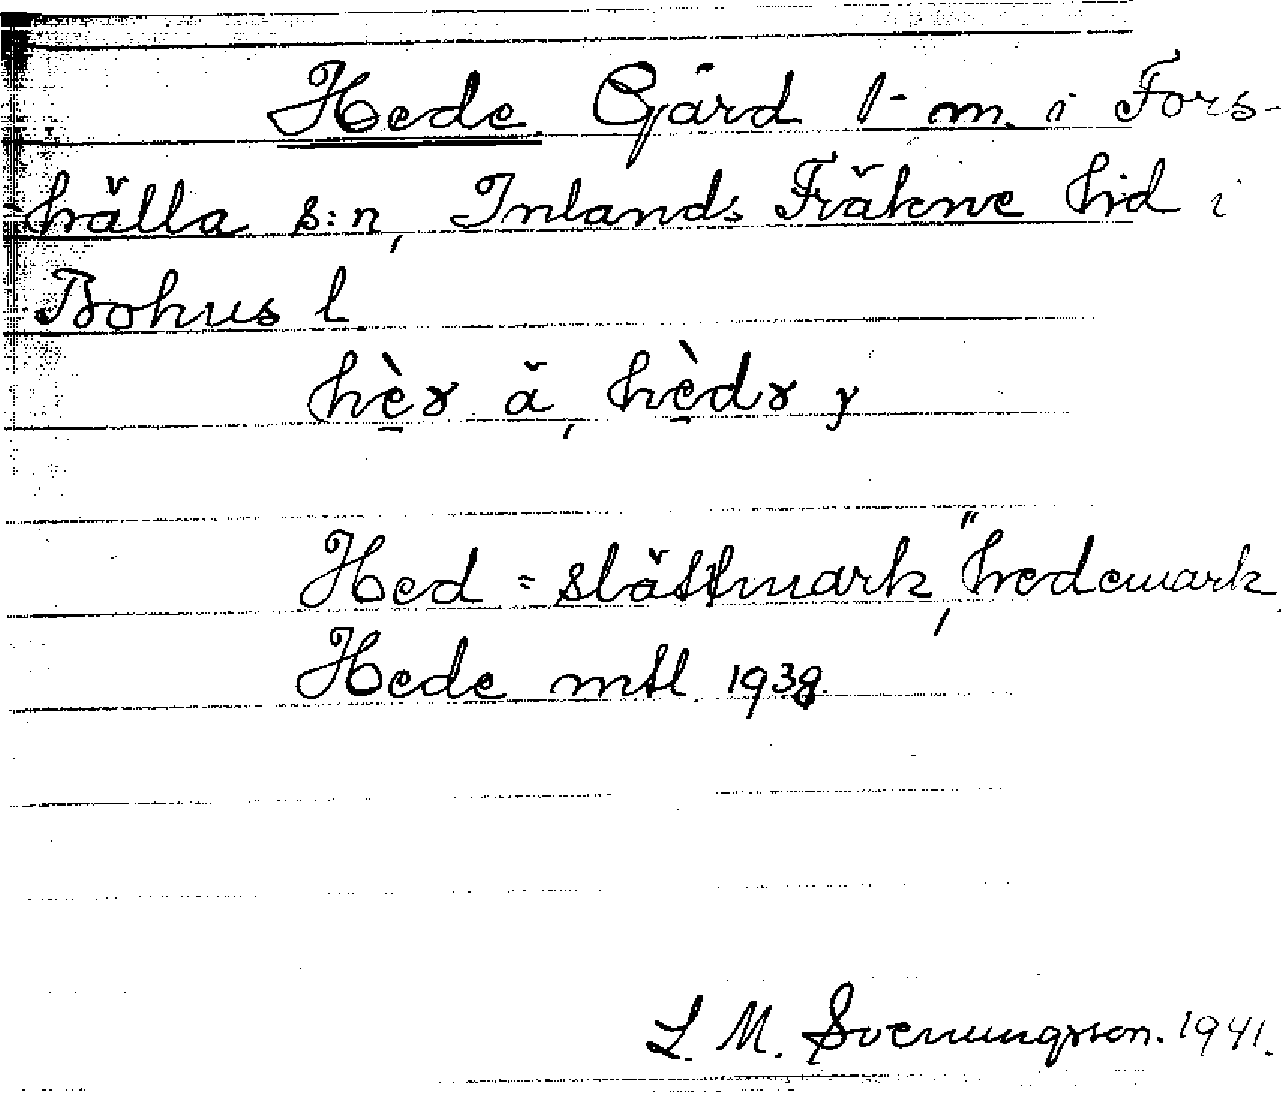 Hede Gård 1 m. i Fors-
hälla s:n, Inlands Fräkne hd i
Bohus l
hè̱r ä, hè̱dr y
Hed = slättmark, "hedemark
Hede mtl 1938
L. M. Svenungsson. 1941.